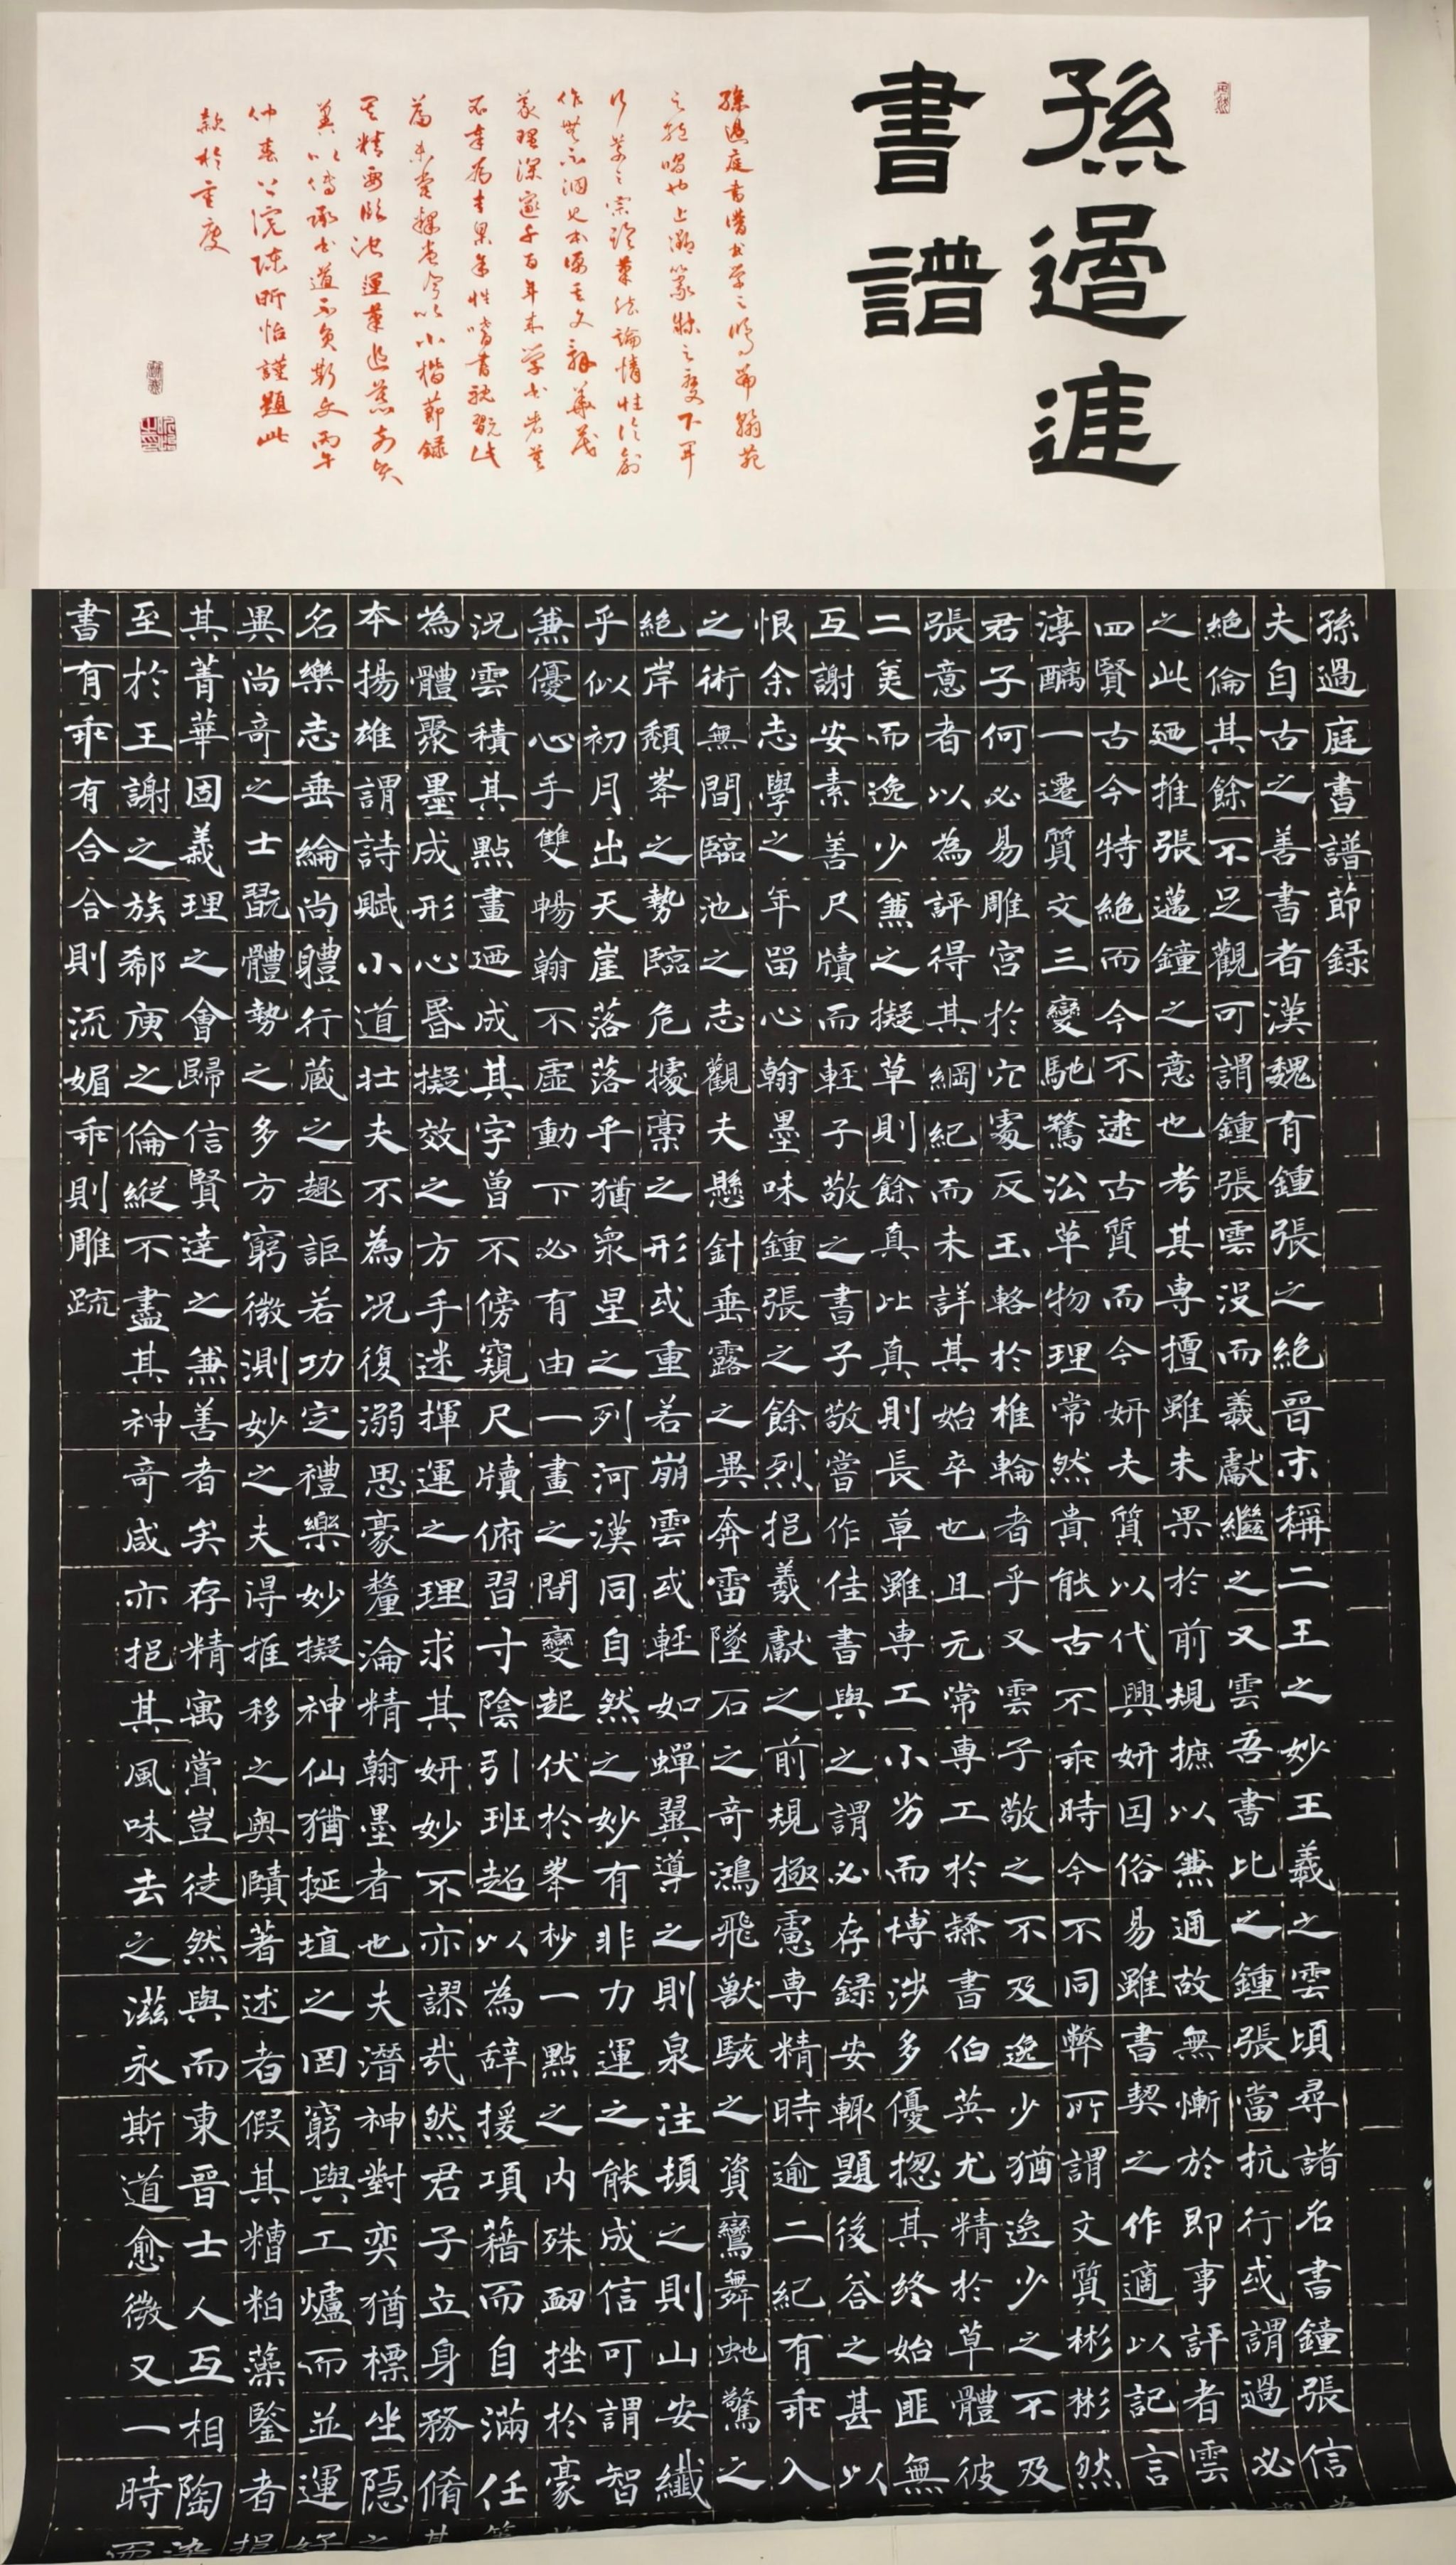 孫過庭
書譜
孫過庭書譜書學之鴻篇翰苑
之絕唱也上溯篆隸之變下開
行草之宗詮筆法論情性
作無不洞見本源其文辭華茂
義理深邃千百年來學書者莫
不奉為圭臬余性嗜書耽翫此
篇未嘗釋卷今以小楷節録
其精要臨池運筆追慕前賢
冀以傳承書道不負斯文丙午
仲春 浣陳昕怡謹題此
款於重慶
孫過庭書譜節録
夫自古之善書者漢魏有鍾張之絕晉末稱二王之妙王羲之雲頃尋諸名書鐘張信
絕倫其餘不足觀可謂鍾張雲沒而羲獻繼之又雲吾書比之鍾張當抗行或謂過必
之此廼推張邁鐘之意也考其專擅雖未果於前規摭以兼通故無慚於即事評者雲
四賢古今特絕而今不逮古古質而今妍夫質以代興妍因俗易雖書契之作適以記言
淳醨一遷質文三變馳騖沿革物理常然貴能古不乖時今不同弊所謂文質彬彬然
君子何必易雕宮於穴處反玉輅於椎輪者乎又雲子敬之不及逸少猶逸少之不及
張意者以為評得其綱紀而未詳其始卒也且元常專工於隸書伯英尤精於草體彼
二美而逸少兼之擬草則餘真比真則長草雖專工小劣而博涉多優揔其終始匪無
互謝安素善尺牘而輕子敬之書子敬嘗作佳書與之謂必存録安輒題後答之甚以
恨余志學之年留心翰墨味鍾張之餘烈挹羲獻之前規極慮專精時逾二紀有乖入
之術無間臨池之志觀夫懸針垂露之異奔雷墜石之奇鴻飛獸駭之資鸞舞虵驚之
絕岸頹峯之勢臨危據槁之形或重若崩雲或輕如蟬翼導之則泉注頓之則山安纖
乎似初月出天崖落落乎猶衆星之列河漢同自然之妙有非力運之能成信可謂智
兼優心手雙暢翰不虛動下必有由一畫之間變起伏於峯杪一點之內殊衂挫於豪
況雲積其點畫廼成其字曾不傍窺尺牘俯習寸陰引班超以為辭援項藉而自滿任
為體聚墨成形心昏擬效之方手迷揮運之理求其妍妙不亦謬哉然君子立身務脩
本揚雄謂詩賦小道壯夫不為況復溺思豪釐淪精翰墨者也夫潛神對奕猶標坐隱
名樂志垂綸尚軆行藏之趣詎若功定禮樂妙擬神仙猶挻埴之罔窮與工爐而並運
異尚奇之士翫體勢之多方窮微測妙之夫得推移之奥賾著述者假其糟粕藻鑒者
其菁華固義理之會歸信賢達之兼善者矣存精寓賞豈徒然與而東晉士人互相陶
至於王謝之族郗庾之倫縱不盡其神奇咸亦挹其風味去之滋永斯道愈微又一時
書有乖有合合則流媚乖則雕疏